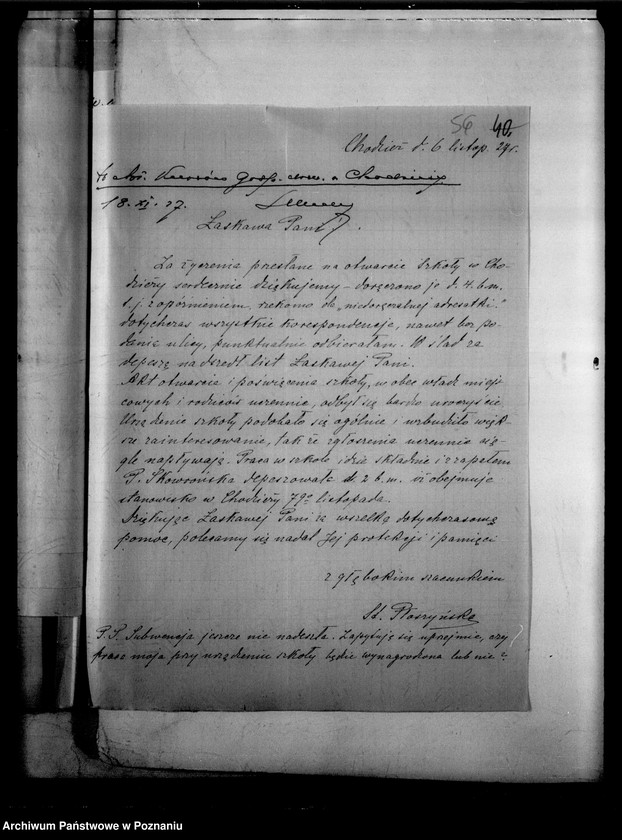 56 40.
Chodzież d. 6 listop. 27r.
Kursów gosp. dom. w Chodzieży
18. XI. 27.
Łaskawa Pani!
Za życzenia przesłane na otwarcie Szkoły w Cho-
dzieży serdecznie dziękujemy - doręczono je d. 4. b.m.
t. j. z opóźnieniem, rzekomo dla "niedoręczalnej adresatki."
dotychczas wszystkie korespondencje, nawet bez po-
dania ulicy, punktualnie odbierałam. W ślad za
depeszą nadszedł list Łaskawej Pani.
Akt otwarcie i poświęcenia szkoły, wobec władz miejs-
cowych i rodziców uczennic, odbył się bardzo uroczyście
Urządzenie szkoły podobało się ogólnie i wzbudziło więk-
sze zainteresowanie, tak że zgłoszenia uczennic cią-
gle napływają. Praca w szkole idzie składnie i z zapałem
P. Skowrońska depeszowała d. 2 b.m. iż obejmuje
stanowisko w Chodzieży 7go listopada.
Dziękując Łaskawej Pani za wszelką dotychczasową
pomoc, polecamy się nadal Jej protekcji i pamięci
z głębokim szacunkiem
St. Płoszyńska
P.S. Subwencja jeszcze nie nadeszła. Zapytuję się uprzejmie, czy
praca moja przy urządzeniu szkoły będzie wynagrodzona lub nie?
Archiwum Państwowe w Poznaniu